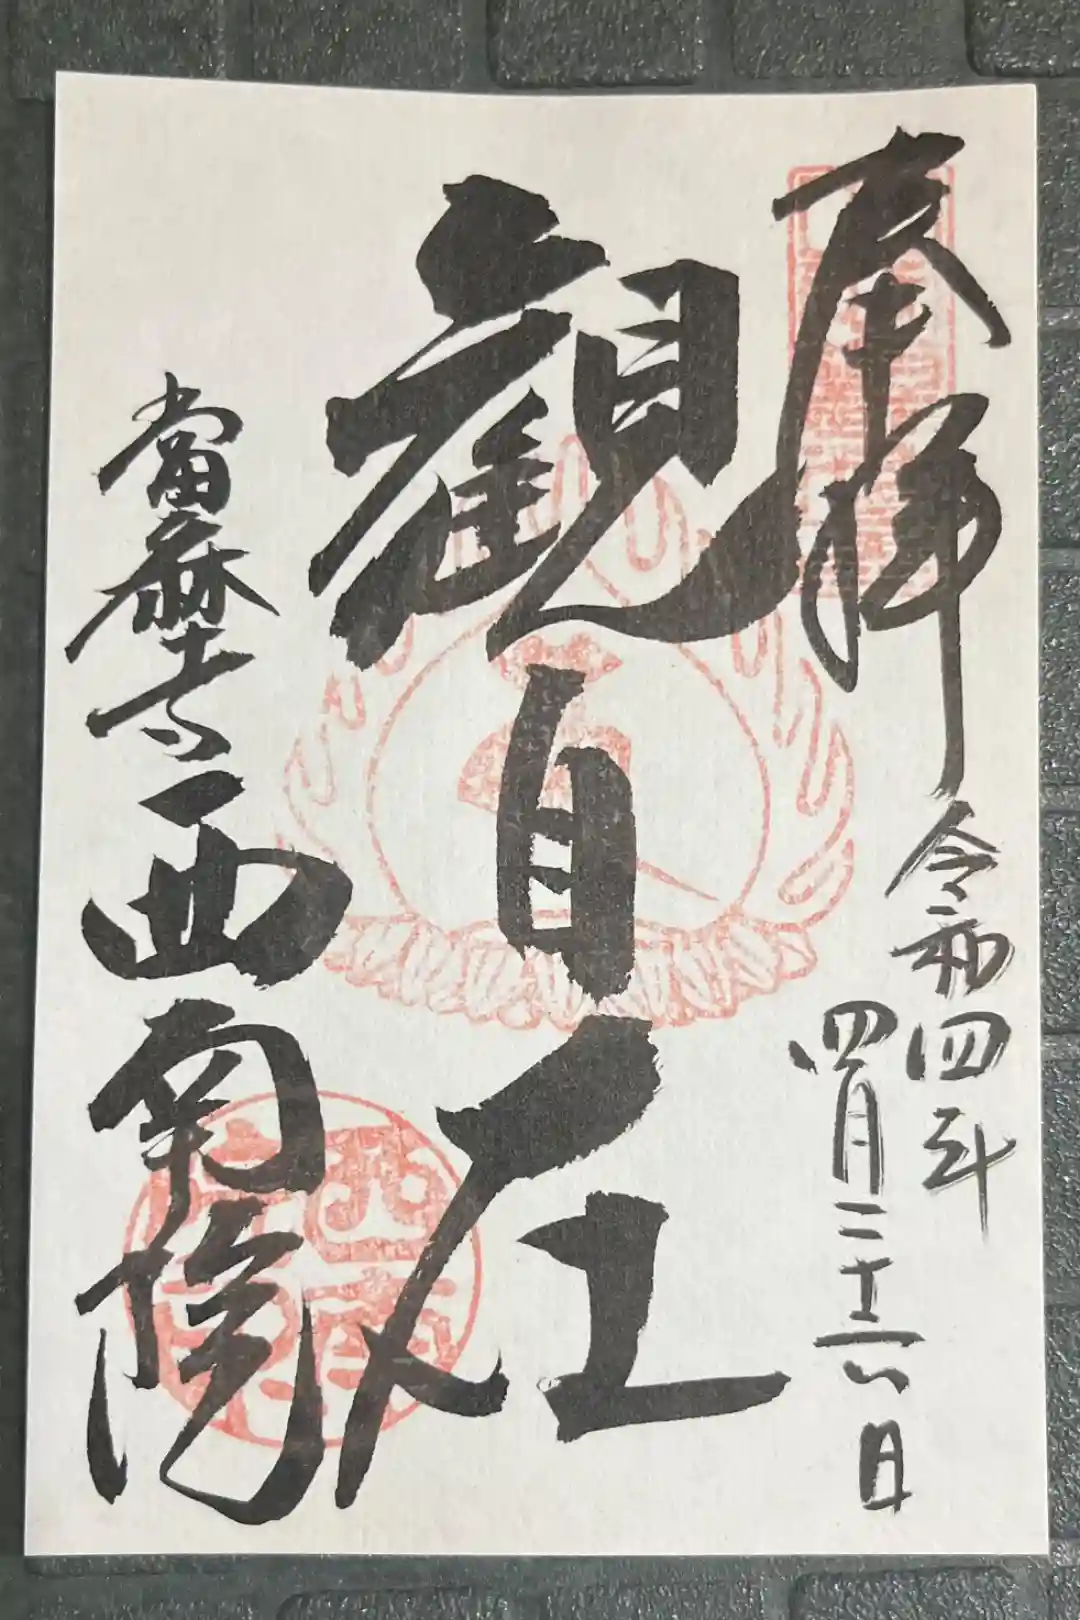 奉拝
令和四年
四月二十六日
観自在
當麻寺
西南院